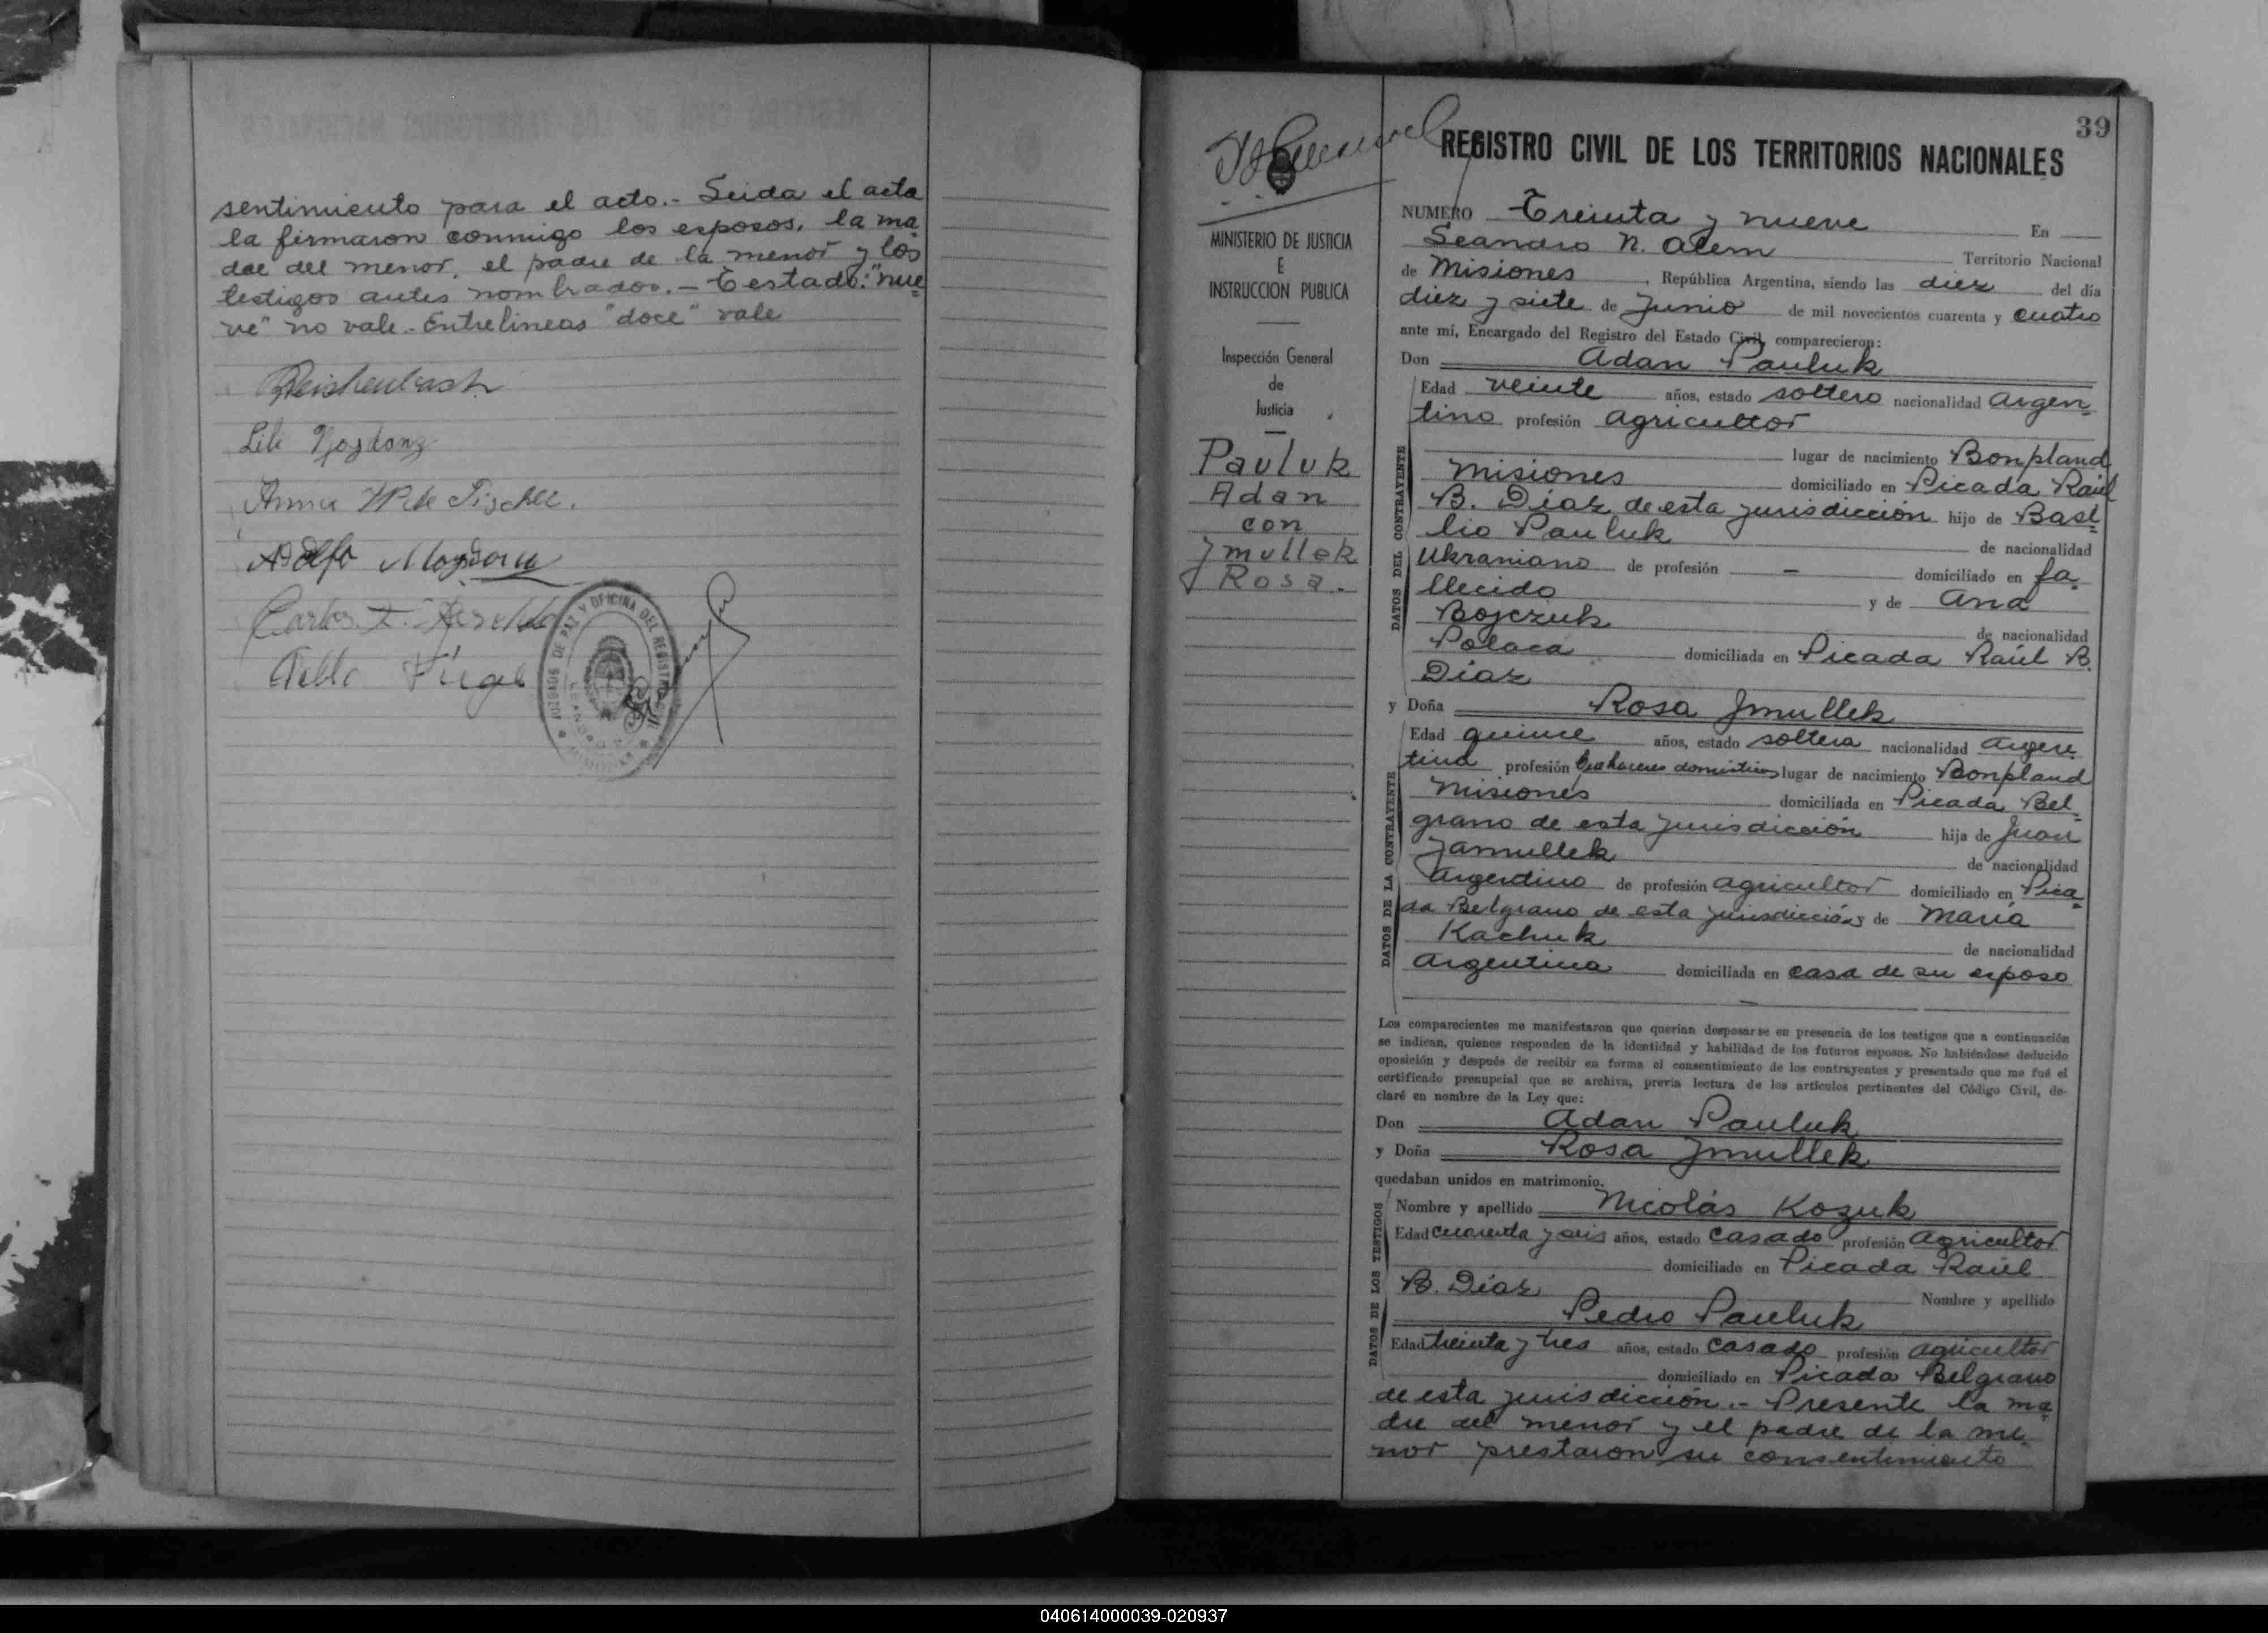 sentimiento para el acto.- Leida el acta
la firmaron conmigo los esposos, la ma
dre del menor, el padre de la menor y los
testigos antes nombrados.- Testado: "nue
ve" no vale.- Entrelineas "doce" vale
Reichenbach
Lili
Anna de Fischer.
Adolfo
Carlos
JUZGADO DE PAZ Y OFICINA DEL REGISTRO CIVIL
39
REGISTRO CIVIL DE LOS TERRITORIOS NACIONALES
MINISTERIO DE JUSTICIA
E
INSTRUCCION PUBLICA
Inspección General
de
Justicia
Pauluk
Adan
con
Jmullek
Rosa.
NUMERO Treinta y nueve En
Leandro N. Alem Territorio Nacional
de Misiones, República Argentina, siendo las diez del día
diez y siete de Junio de mil novecientos cuarenta y cuatro
ante mí, Encargado del Registro del Estado Civil, comparecieron:
Don Adan Pauluk
Edad veinte años, estado soltero nacionalidad Argen
tino profesión Agricultor
lugar de nacimiento Bonpland
Misiones domiciliado en Picada Raúl
B. Díaz de esta jurisdicción hijo de Basi
lio Pauluk de nacionalidad
Ukraniano de profesión - domiciliado en fa
llecido y de Ana
Bojczuk de nacionalidad
Polaca domiciliada en Picada Raúl B.
Díaz
DATOS DEL CONTRAYENTE
y Doña Rosa Jmullek
Edad quince años, estado soltera nacionalidad Argen
tina profesión Quehaceres domésticos lugar de nacimiento Bonpland
Misiones domiciliada en Picada Bel
grano de esta jurisdicción hija de Juan
Jamullek de nacionalidad
Argentino de profesión Agricultor domiciliado en Pica
da Belgrano de esta jurisdicción y de María
Kachuk de nacionalidad
Argentina domiciliada en casa de su esposo
DATOS DE LA CONTRAYENTE
Los comparecientes me manifestaron que querían desposarse en presencia de los testigos que a continuación
se indican, quienes responden de la identidad y habilidad de los futuros esposos. No habiéndose deducido
oposición y después de recibir en forma el consentimiento de los contrayentes y presentado que me fué el
certificado prenupcial que se archiva, previa lectura de los artículos pertinentes del Código Civil, de-
claré en nombre de la Ley que:
Don Adan Pauluk
y Doña Rosa Jmullek
quedaban unidos en matrimonio.
Nombre y apellido Nicolás Kozuk
Edad cuarenta y seis años, estado casado profesión Agricultor
domiciliado en Picada Raúl
B. Díaz Nombre y apellido
Pedro Pauluk
Edad treinta y tres años, estado casado profesión agricultor
domiciliado en Picada Belgrano
DATOS DE LOS TESTIGOS
de esta jurisdicción.- Presente la ma
dre del menor y el padre de la me
nor prestaron su consentimiento
040614000039-020937